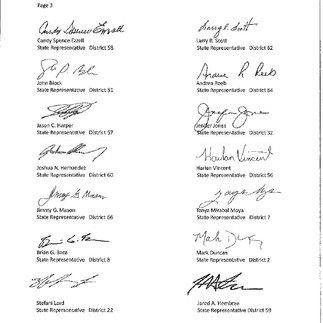 Page 3
Candy Spence Ezzell
Larry R. Scott
Candy Spence Ezzell
State Representative District 58
Larry R. Scott
State Representative District 62
Andrea R Reeb
John Block
State Representative District 51
Andrea Reeb
State Representative District 64
Jenifer Jones
Jason C. Harper
State Representative District 57
Jenifer Jones
State Representative District 32
Harlan Vincent
Joshua N. Hernandez
State Representative District 60
Harlan Vincent
State Representative District 56
Jimmy G Mason
Jimmy G. Mason
State Representative District 66
Tanya Mirabal Moya
State Representative District 7
Brian G. Baca
State Representative District 8
Mark Duncan
State Representative District 2
Stefani Lord
State Representative District 22
Jared A. Hembree
State Representative District 59